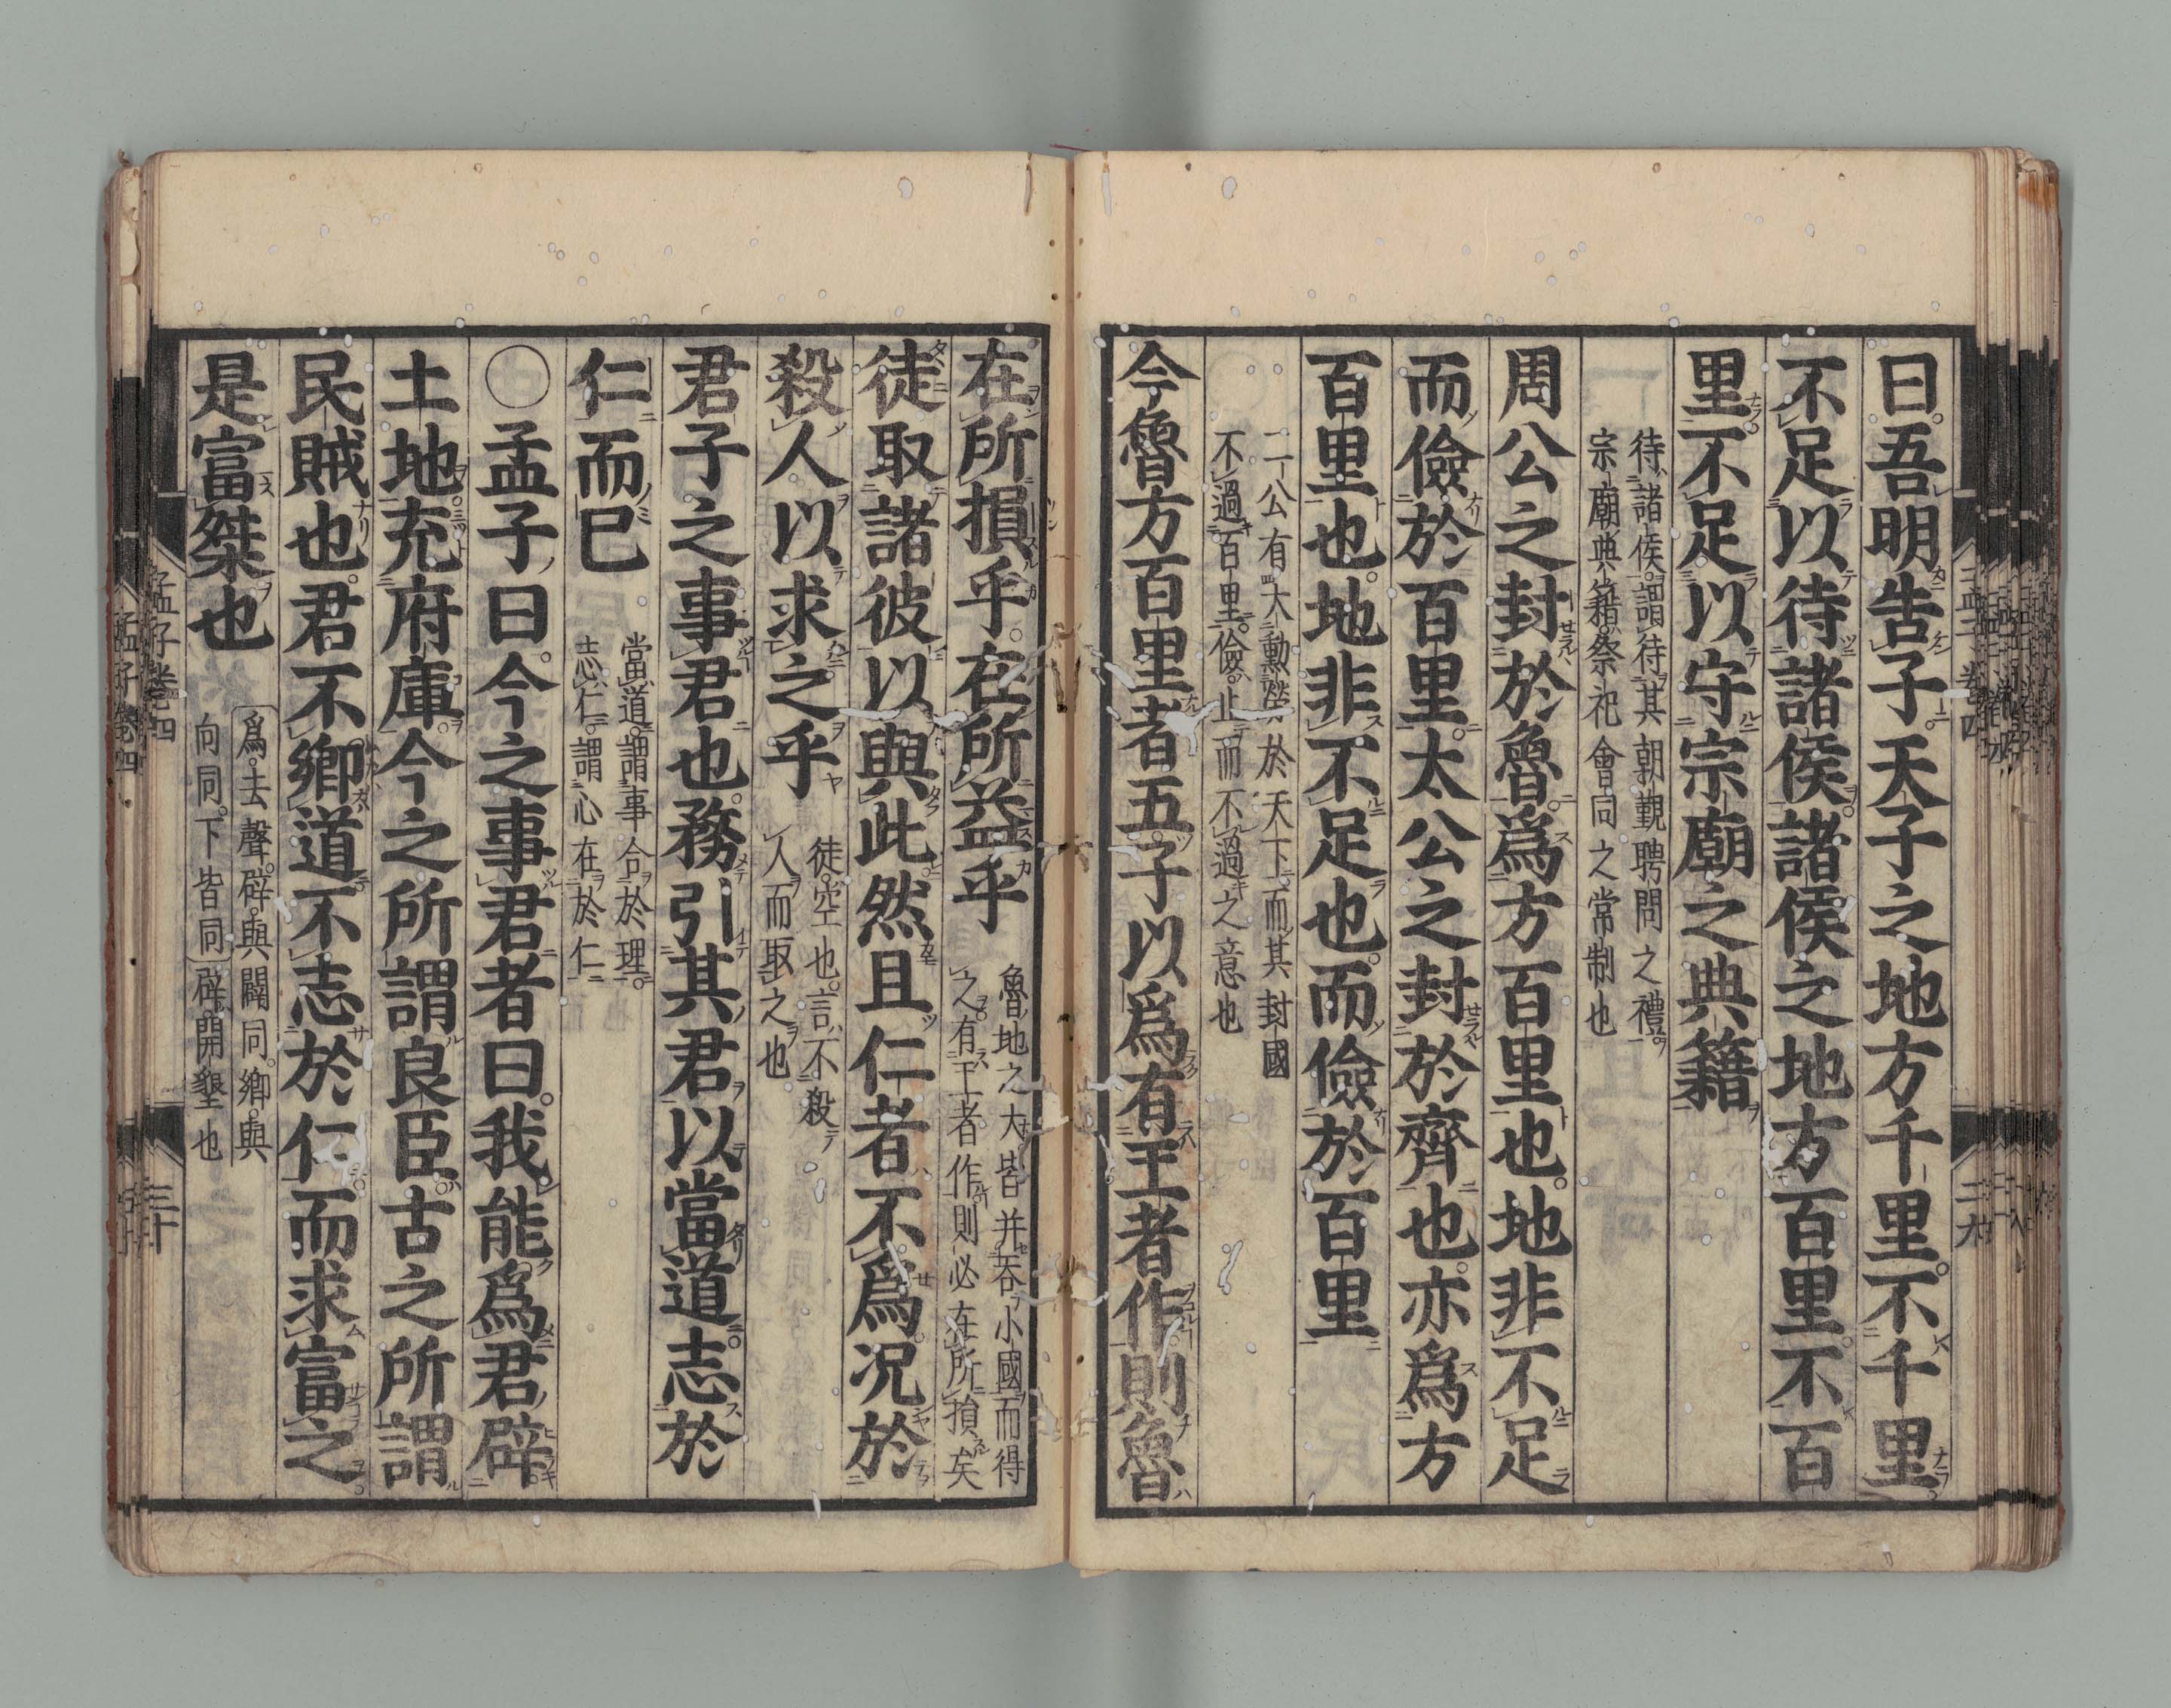 曰吾明告子天子之地方千里不千里
不足以待諸侯諸侯之地方百里不百
里不足以守宗廟之典籍
待諸侯謂待其朝覲聘問之禮
宗廟典籍祭祀會同之常制也
周公之封於魯爲方百里也地非不足
而儉於百里太公之封於齊也亦爲方
百里也地非不足也而儉於百里
二公有大勳勞於天下而其封國
不過百里儉止而不過之意也
今魯方百里者五子以爲有王者作則魯
在所損乎在所益乎
魯地之大皆并吞小國而得
之有王者作則必在所損矣
徒取諸彼以與此然且仁者不爲况於
殺人以求之乎
徒空也言不殺
人而取之也
君子之事君也務引其君以當道志於
仁而已
當道謂事合於理
志仁謂心在於仁
○孟子曰今之事君者曰我能爲君辟
土地充府庫今之所謂良臣古之所謂
民賊也君不鄉道不志於仁而求富之
是富桀也
爲去聲辟與闢同鄉與
向同下皆同辟開墾也
孟子卷四
三十